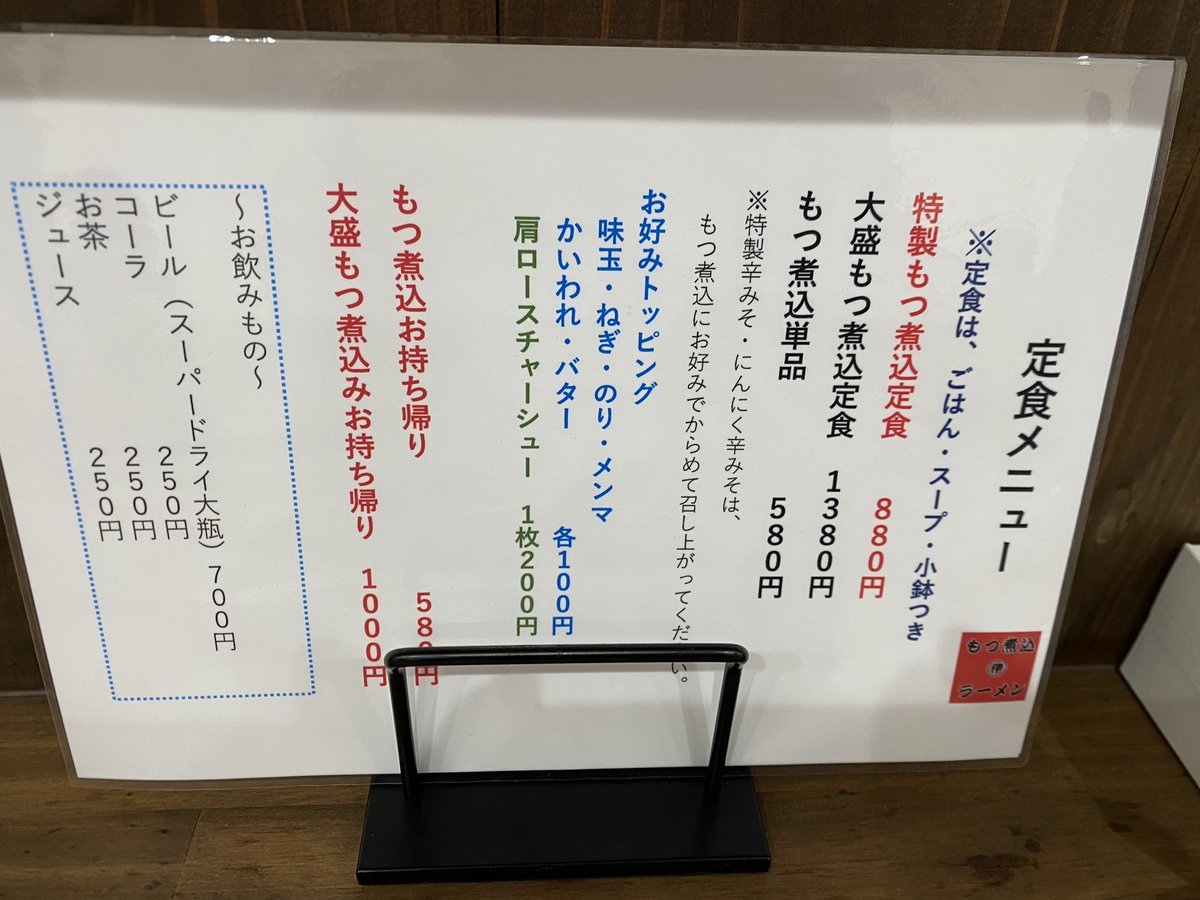 定食メニュー
※定食は、ごはん・スープ・小鉢つき
特製もつ煮込定食 880円
大盛もつ煮込定食 1380円
もつ煮込単品 580円
※特製辛みそ・にんにく辛みそは、
もつ煮込にお好みでからめて召し上がってください。
お好みトッピング
味玉・ねぎ・のり・メンマ
かいわれ・バター 各100円
肩ロースチャーシュー 1枚200円
もつ煮込お持ち帰り 580円
大盛もつ煮込みお持ち帰り 1000円
～お飲みもの～
ビール（スーパードライ大瓶）700円
コーラ 250円
お茶 250円
ジュース 250円
もつ煮込
伊
ラーメン